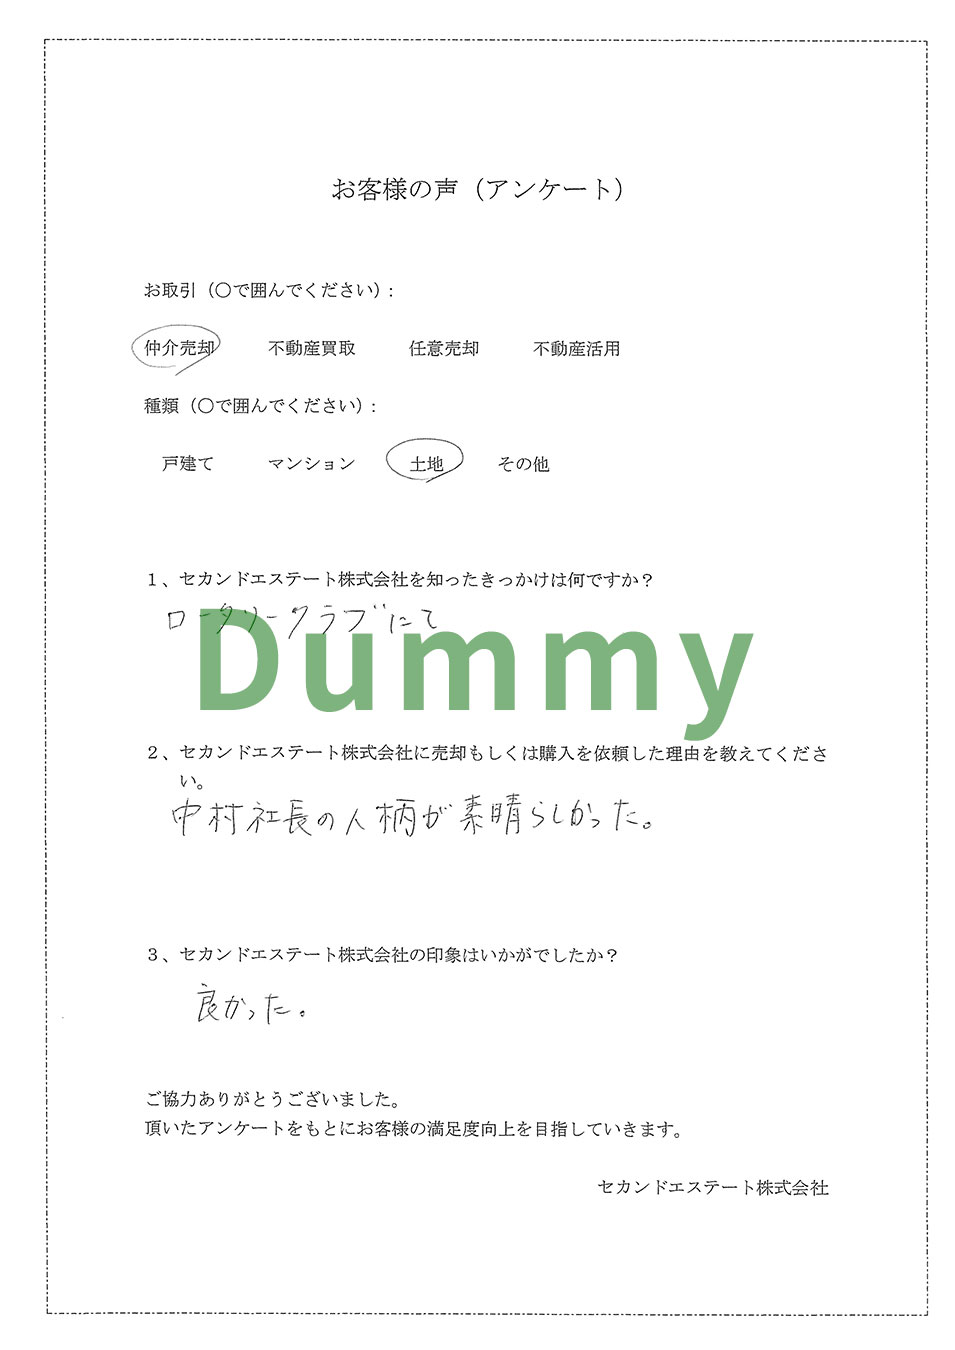 お客様の声（アンケート）
お取引（〇で囲んでください）:
仲介売却　不動産買取　任意売却　不動産活用
種類（〇で囲んでください）:
戸建て　マンション　土地　その他
１、セカンドエステート株式会社を知ったきっかけは何ですか？
ロータリークラブにて
Dummy
２、セカンドエステート株式会社に売却もしくは購入を依頼した理由を教えてくださ
い。
中村社長の人柄が素晴らしかった。
３、セカンドエステート株式会社の印象はいかがでしたか？
良かった。
ご協力ありがとうございました。
頂いたアンケートをもとにお客様の満足度向上を目指していきます。
セカンドエステート株式会社